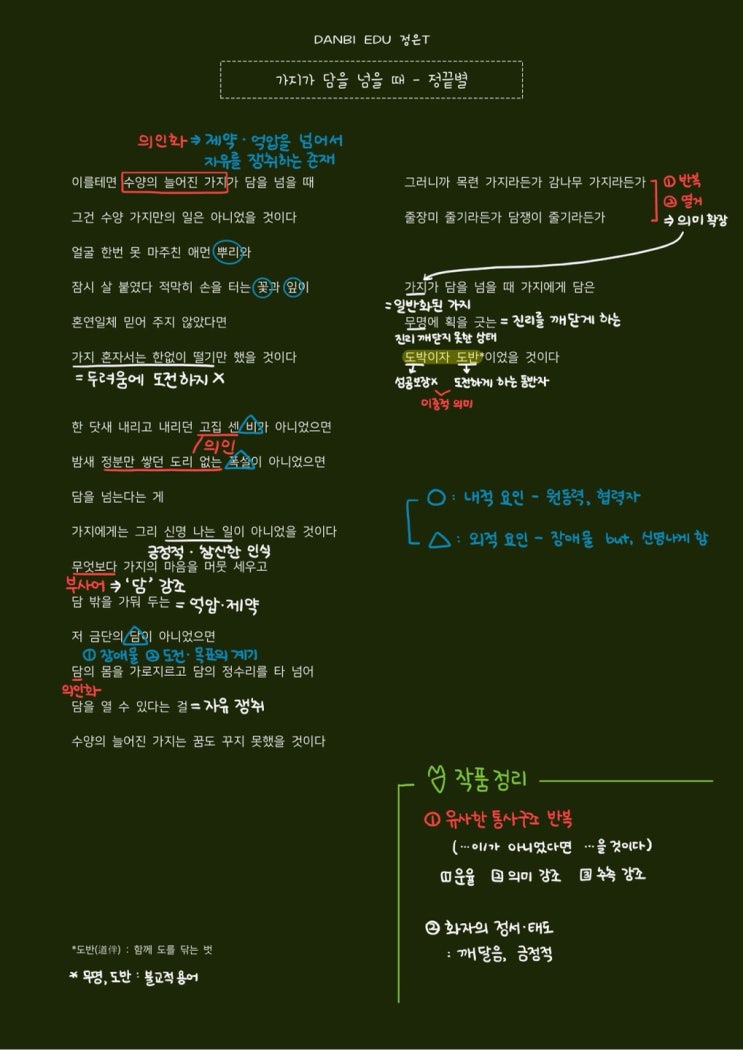 DANBI EDU 정은T
가지가 담을 넘을 때 - 정끝별
의인화 ⇒ 제약·억압을 넘어서
자유를 쟁취하는 존재
이를테면 수양의 늘어진 가지가 담을 넘을 때
그건 수양 가지만의 일은 아니었을 것이다
얼굴 한번 못 마주친 애먼 뿌리와
잠시 살 붙였다 적막히 손을 터는 꽃과 잎이
혼연일체 믿어 주지 않았다면
가지 혼자서는 한없이 떨기만 했을 것이다
= 두려움에 도전하지 X
한 닷새 내리고 내리던 고집 센 비가 아니었으면
의인
밤새 정분만 쌓던 도리 없는 폭설이 아니었으면
담을 넘는다는 게
가지에게는 그리 신명 나는 일이 아니었을 것이다
긍정적·참신한 인식
무엇보다 가지의 마음을 머뭇 세우고
부사어 ⇒ '담' 강조
담 밖을 가둬 두는 = 억압·제약
저 금단의 담이 아니었으면
① 장애물 ② 도전·목표의 계기
담의 몸을 가로지르고 담의 정수리를 타 넘어
의인화
담을 열 수 있다는 걸 = 자유 쟁취
수양의 늘어진 가지는 꿈도 꾸지 못했을 것이다
그러니까 목련 가지라든가 감나무 가지라든가
① 반복
② 열거
줄장미 줄기라든가 담쟁이 줄기라든가
⇒ 의미 확장
가지가 담을 넘을 때 가지에게 담은
= 일반화된 가지
무명에 획을 긋는 = 진리를 깨닫게 하는
진리 깨닫지 못한 상태
도박이자 도반*이었을 것이다
성공보장x 도전하게 하는 동반자
이중적 의미
○ : 내적 요인 - 원동력, 협력자
△ : 외적 요인 - 장애물 but, 신명나게 함
작품 정리
① 유사한 통사구조 반복
(…이/가 아니었다면 …을 것이다)
① 운율 ② 의미 강조 ③ 주제 강조
② 화자의 정서·태도
: 깨달음, 긍정적
*도반(道伴) : 함께 도를 닦는 벗
* 무명, 도반 : 불교적 용어